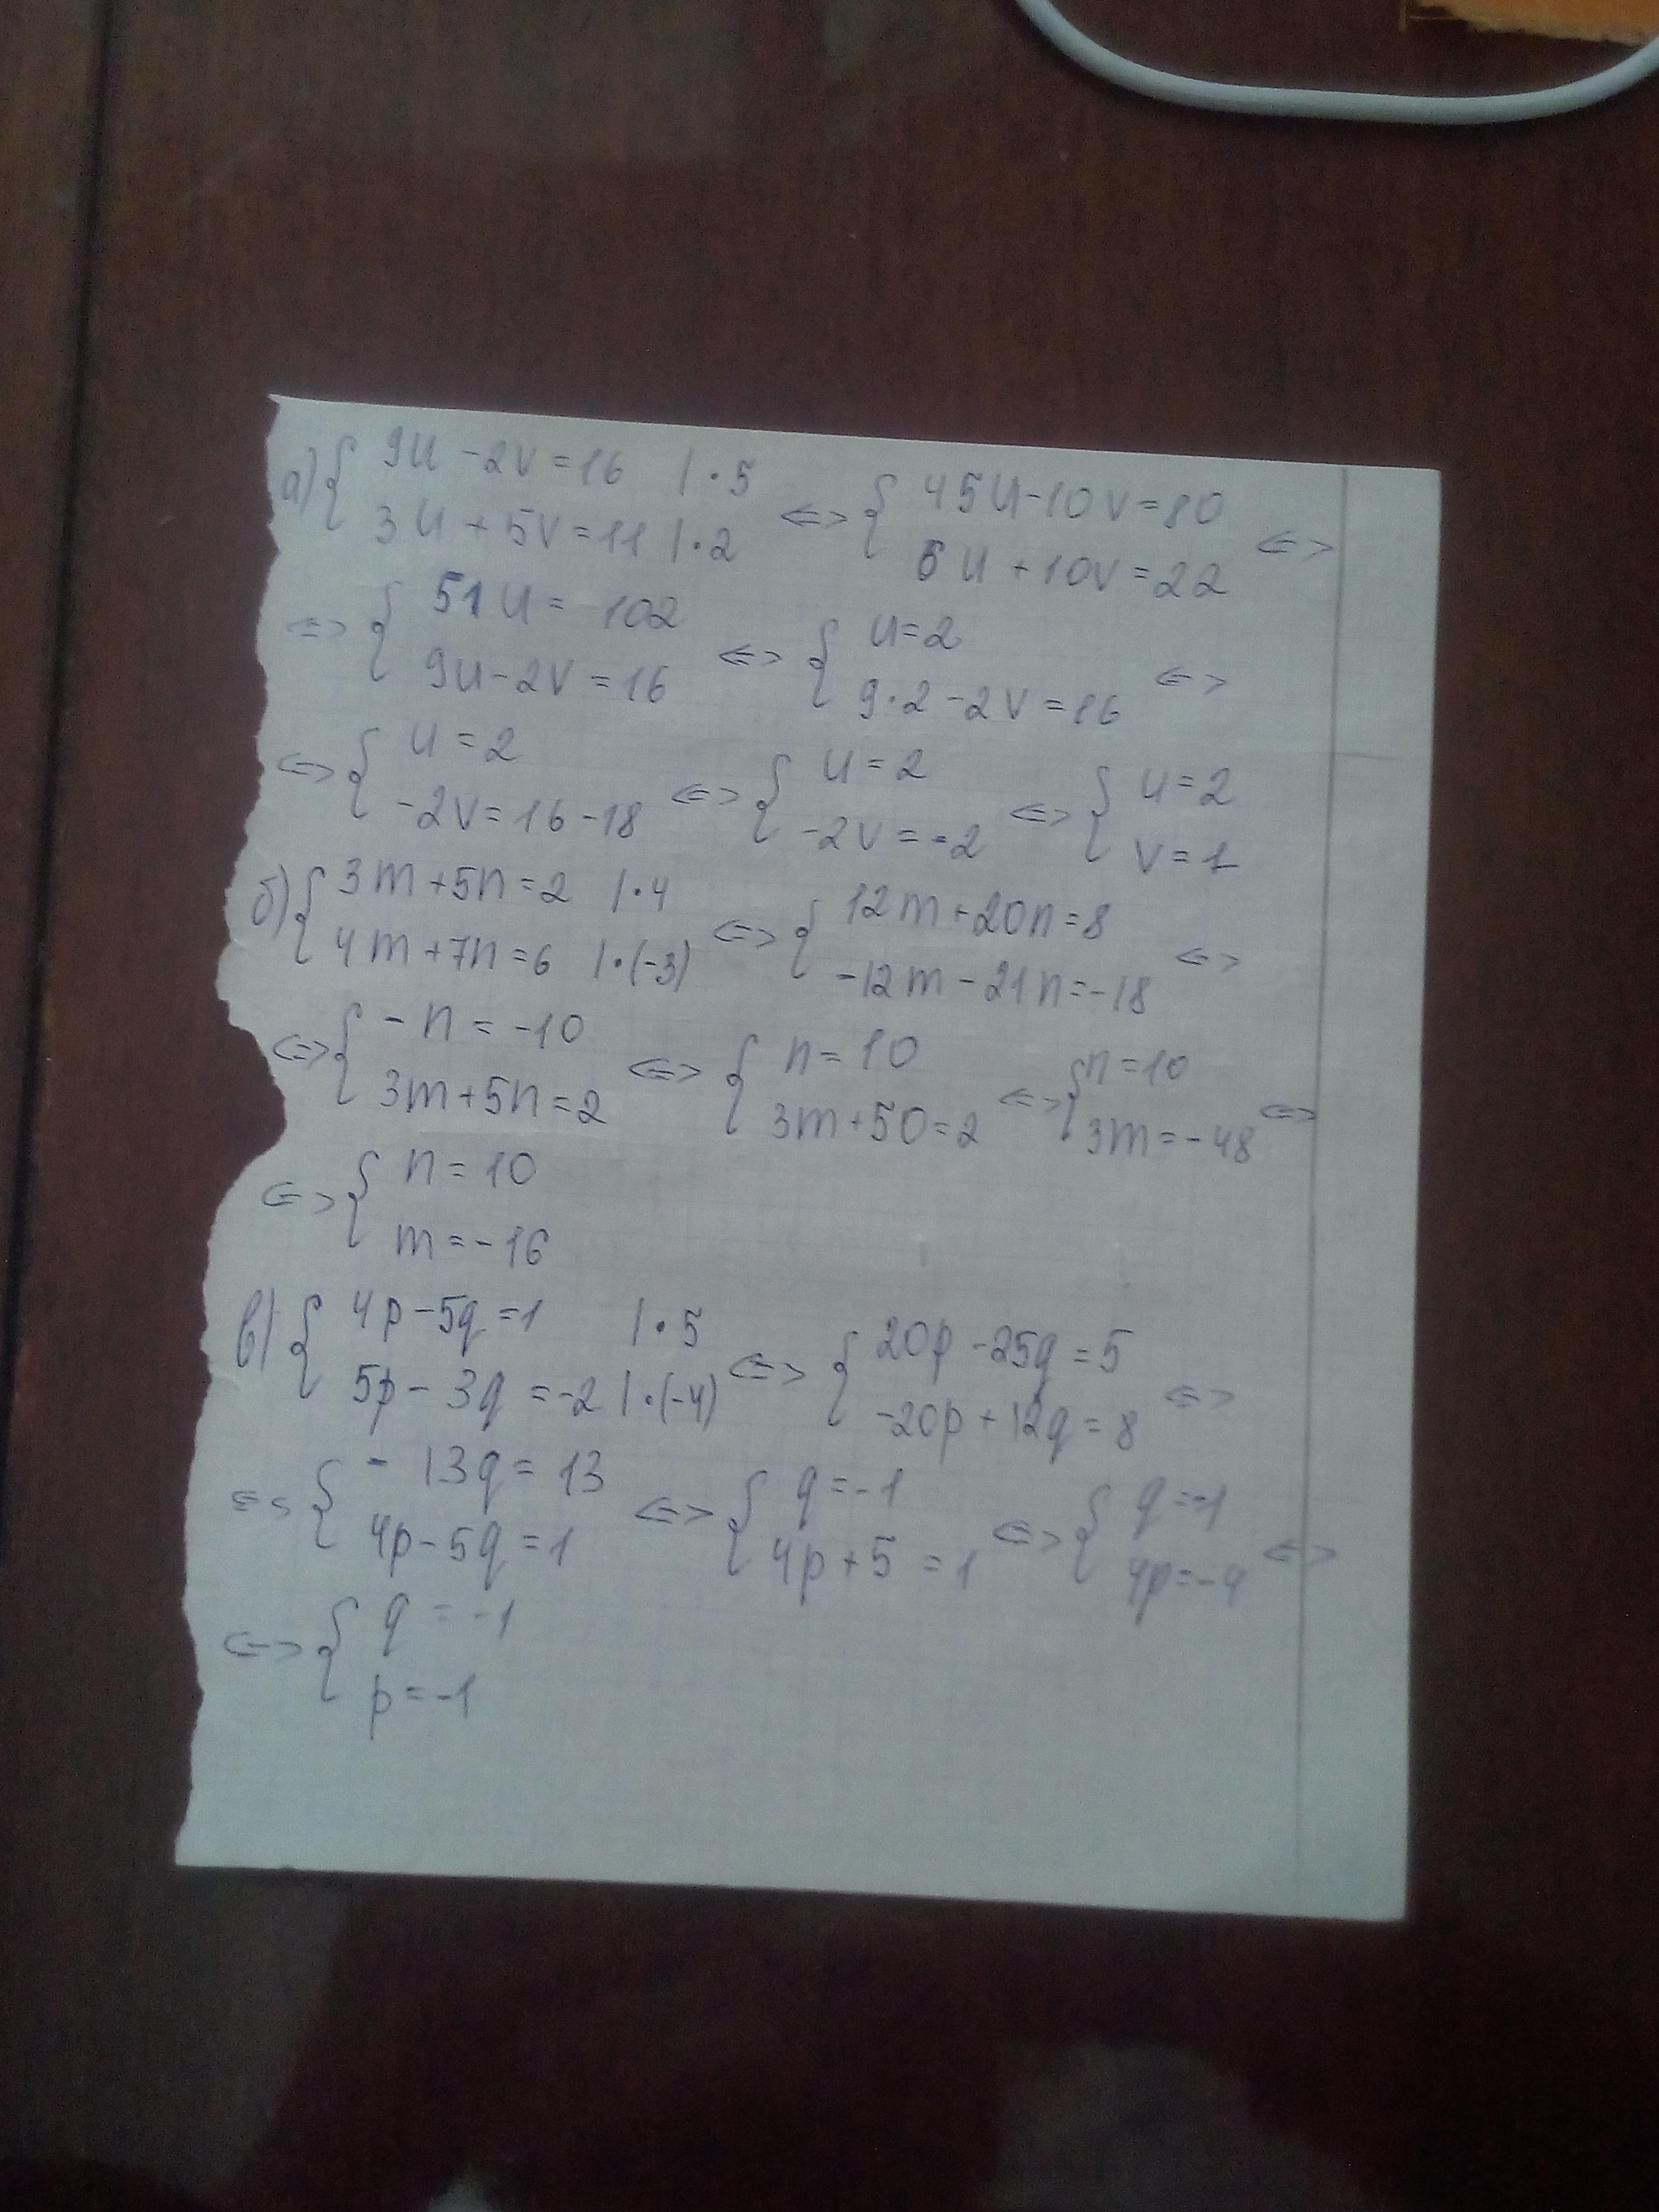 а) { 9u - 2v = 16 | · 5
3u + 5v = 11 | · 2 <=> { 45u - 10v = 80
6u + 10v = 22 <=>
<=> { 51u = 102
9u - 2v = 16 <=> { u = 2
9 · 2 - 2v = 16 <=>
<=> { u = 2
-2v = 16 - 18 <=> { u = 2
-2v = -2 <=> { u = 2
v = 1
б) { 3m + 5n = 2 | · 4
4m + 7n = 6 | · (-3) <=> { 12m + 20n = 8
-12m - 21n = -18 <=>
<=> { -n = -10
3m + 5n = 2 <=> { n = 10
3m + 50 = 2 <=> { n = 10
3m = -48 <=>
<=> { n = 10
m = -16
в) { 4p - 5q = 1 | · 5
5p - 3q = -2 | · (-4) <=> { 20p - 25q = 5
-20p + 12q = 8 <=>
<=> { -13q = 13
4p - 5q = 1 <=> { q = -1
4p + 5 = 1 <=> { q = -1
4p = -4 <=>
<=> { q = -1
p = -1